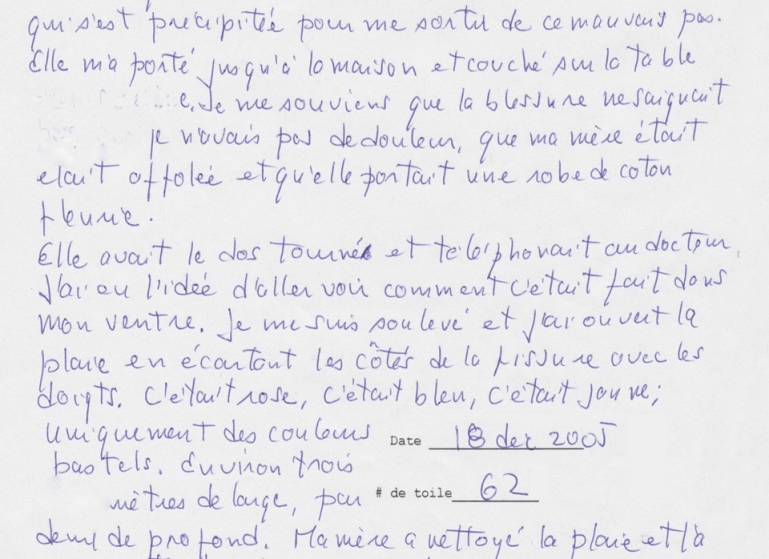 qui s'est précipitée pour me sortir de ce mauvais pas.
Elle m'a porté jusqu'à la maison et couché sur la table
e. Je me souviens que la blessure ne saignait
je n'avais pas de douleur, que ma mère était
était affolée et qu'elle portait une robe de coton
fleurie.
Elle avait le dos tourné et téléphonait au docteur.
J'ai eu l'idée d'aller voir comment c'était fait dans
mon ventre. Je me suis soulevé et j'ai ouvert la
plaie en écartant les côtés de la fissure avec les
doigts. C'était rose, c'était bleu, c'était jaune;
uniquement des couleurs
pastels. Environ trois
mètres de large, par
Date 18 dec 2005
# de toile 62
demi de profond. Ma mère a nettoyé la plaie et l'a